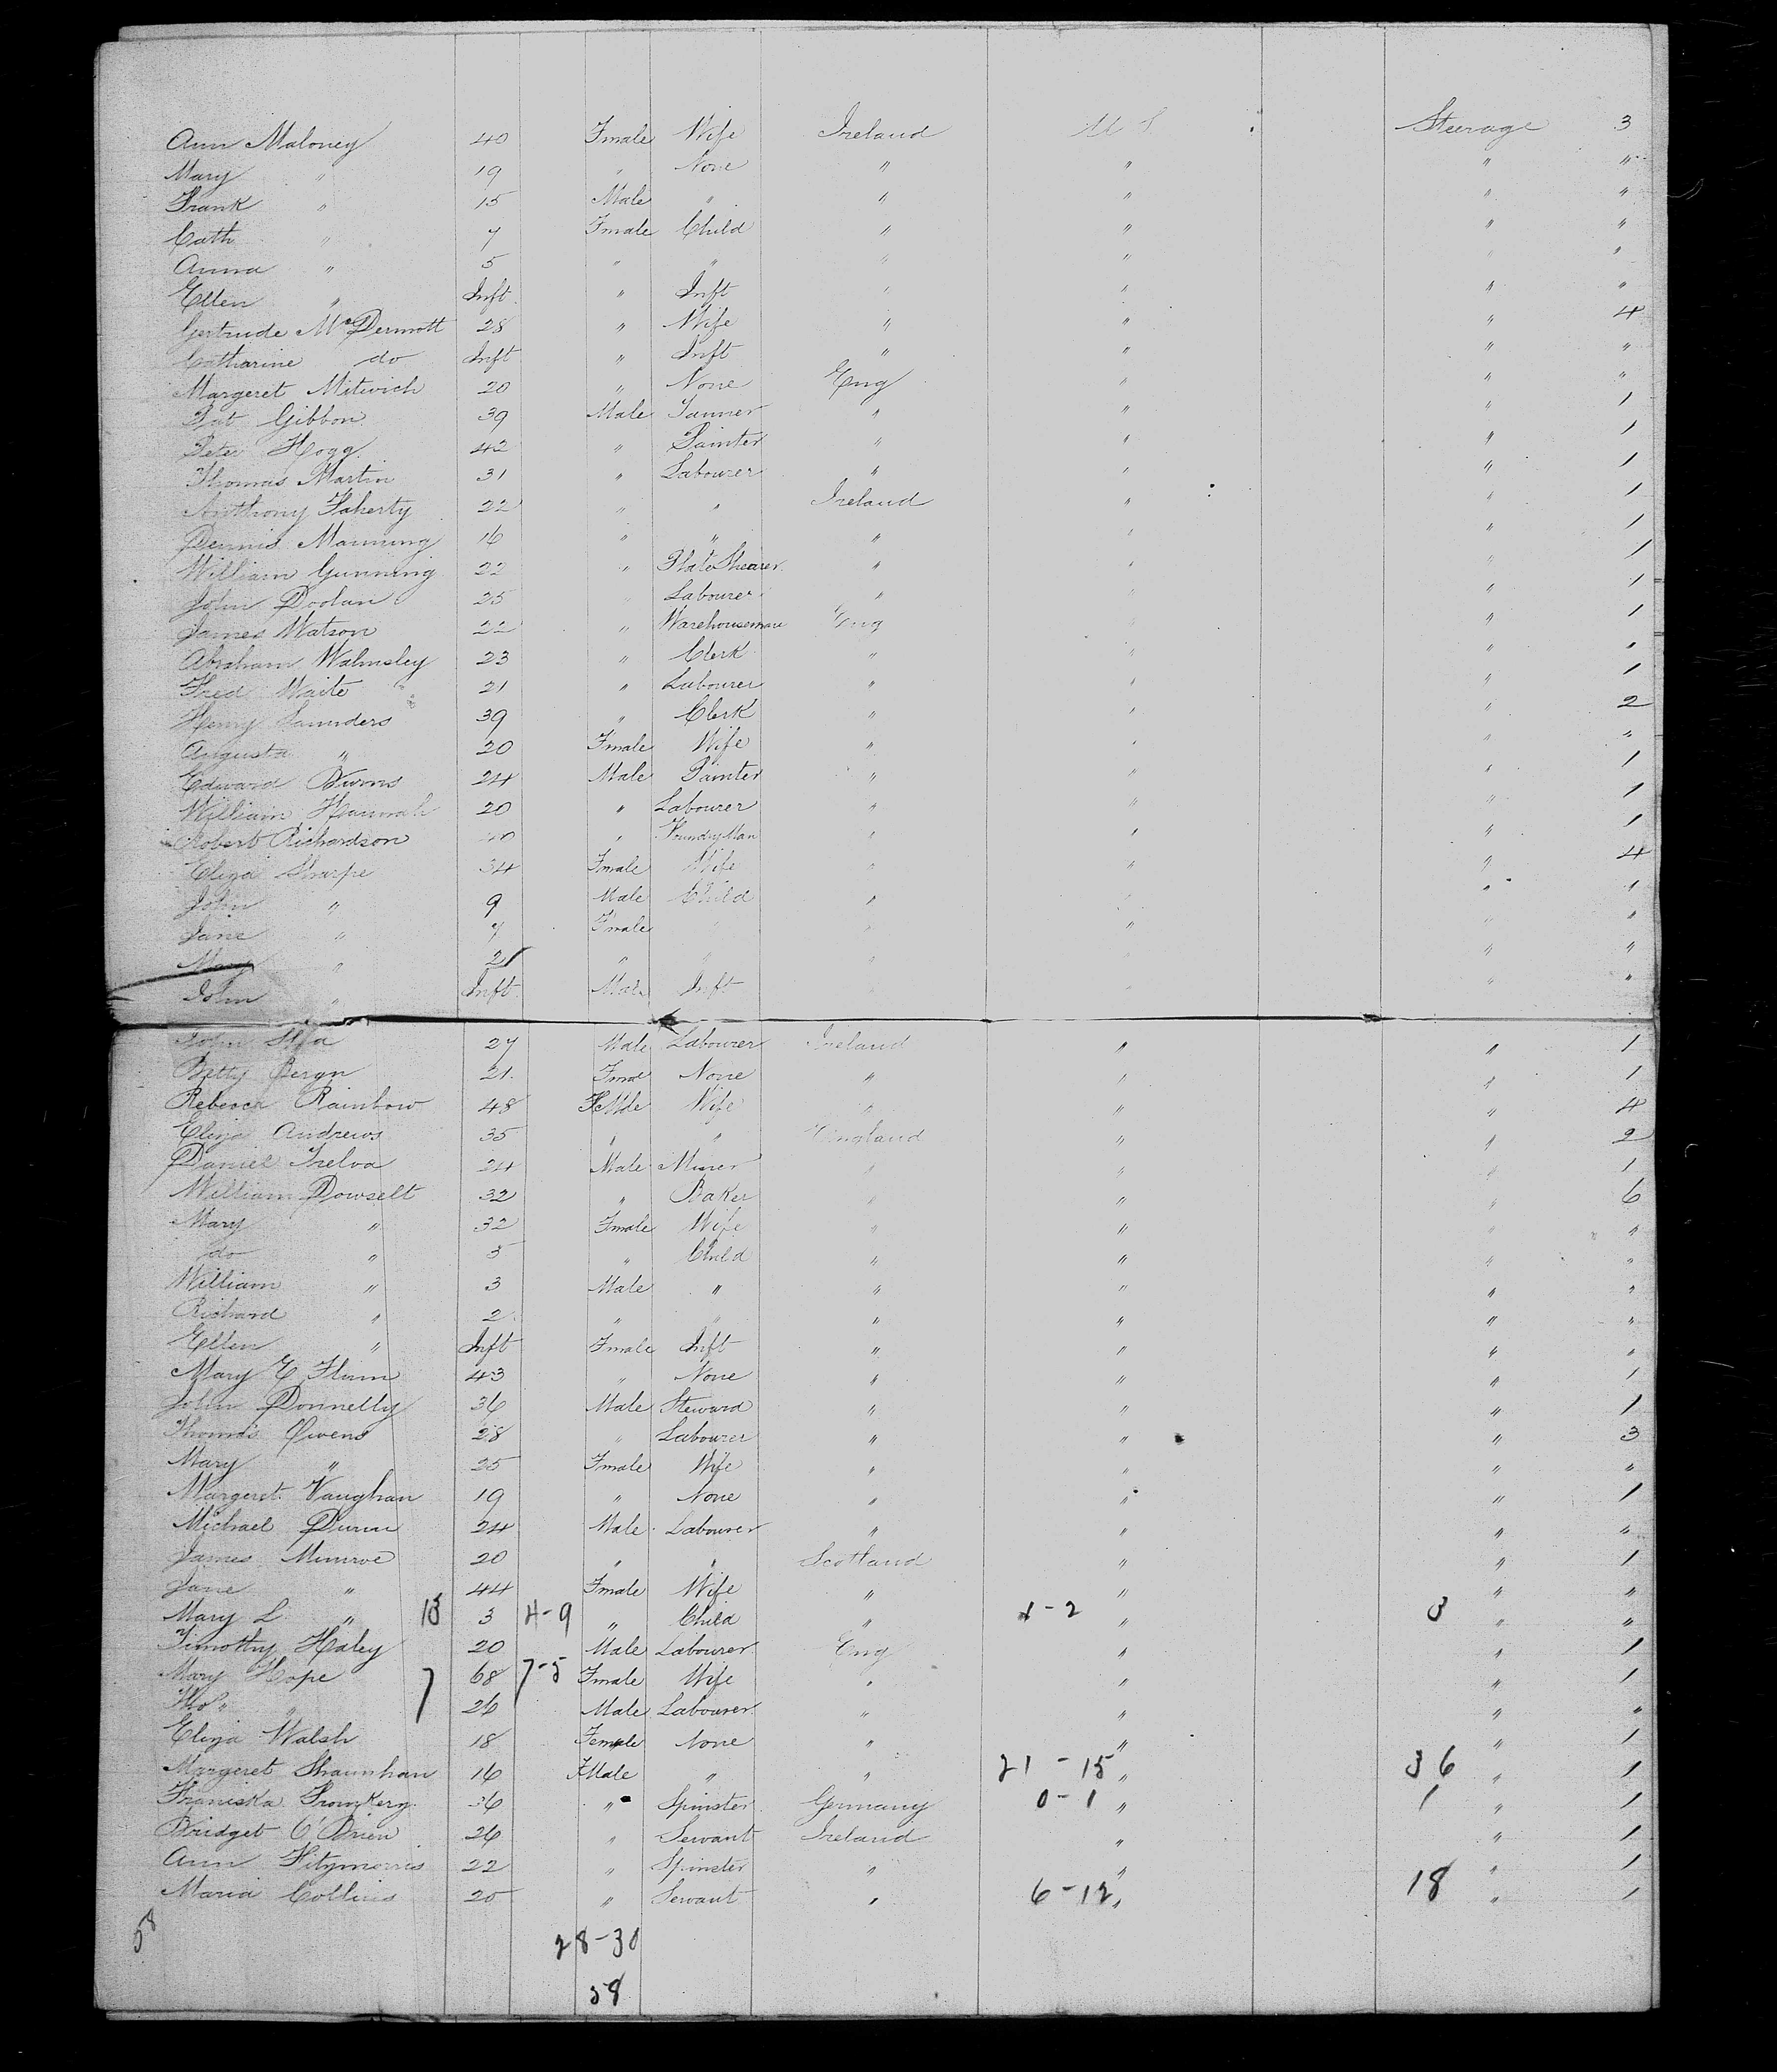 Ann Maloney 40 Fmale Wife Ireland U S Steerage 3
Mary " 19 " None " " " "
Frank " 15 Male " " " " "
Cath " 7 Fmale Child " " " "
Anna " 5 " " " " " "
Ellen " Inft " Inft " " " "
Gertrude McDermott 28 " Wife " " " 4
Catharine do Inft " Inft " " " "
Margeret Mitwich 20 " None Eng " " "
Pat Gibbon 39 Male Tanner " " " 1
Peter Hogg 42 " Painter " " " 1
Thomas Martin 31 " Labourer " " " 1
Anthony Faherty 22 " " Ireland " " 1
Dennis Manning 16 " " " " " 1
William Gunning 22 " Plate Shearer " " " 1
John Doolan 25 " Labourer " " " 1
James Watson 22 " Warehouseman Eng " " 1
Abraham Walmsley 23 " Clerk " " " "
Fred Waite 21 " Labourer " " " 1
Henry Saunders 39 " Clerk " " " 2
Augusta " 20 Fmale Wife " " " "
Edward Burns 24 Male Painter " " " 1
William Hannah 20 " Labourer " " " 1
Robert Richardson 40 " Foundry Man " " " 1
Eliza Sharpe 34 Fmale Wife " " " 4
John " 9 Male Child " " " "
Jane " 7 Fmale " " " " "
Mary " 2 " " " " " "
John " Inft Male Inft " " " "
John 27 Male Labourer Ireland " " 1
Betty 21 Fmal None " " " 1
Rebecca Rainbow 48 FeMle Wife " " " 4
Eliza Andrews 35 " " England " " 2
Daniel Trelva 24 Male Miner " " " 1
William Dowselt 32 " Baker " " " 6
Mary " 32 Fmale Wife " " " "
do " 5 " Child " " " "
William " 3 Male " " " " "
Richard " 2 " " " " " "
Ellen " Inft Fmale Inft " " " "
Mary E Flunn 43 " None " " " 1
John Donnelly 36 Male Steward " " " 1
Thomas Owens 28 " Labourer " " " 3
Mary " 25 Fmale Wife " " " "
Margeret Vaughan 19 " None " " " 1
Michael Dunn 24 Male Labourer " " " "
James Munroe 20 " " Scotland " " 1
Jane " 44 Fmale Wife " " " "
Mary L " 13 3 4-9 " Child " 1-2 " 3 " "
Timothy Haley 20 Male Labourer Eng " " 1
Mary Hope 7 68 7-5 Fmale Wife " " " 1
Thos " 26 Male Labourer " " " "
Eliza Walsh 18 Female None " " " 1
Margeret Shaunhan 16 FMale " " 21-15 " 36 " 1
Franiska 36 " Spinster Germany 0-1 " 1 " 1
Bridget O'Brien 26 " Servant Ireland " " 1
Ann Fitzmorris 22 " Spinster " " " 1
Maria Collins 20 " Servant " 6-12 " 18 " 1
58
28-30
58